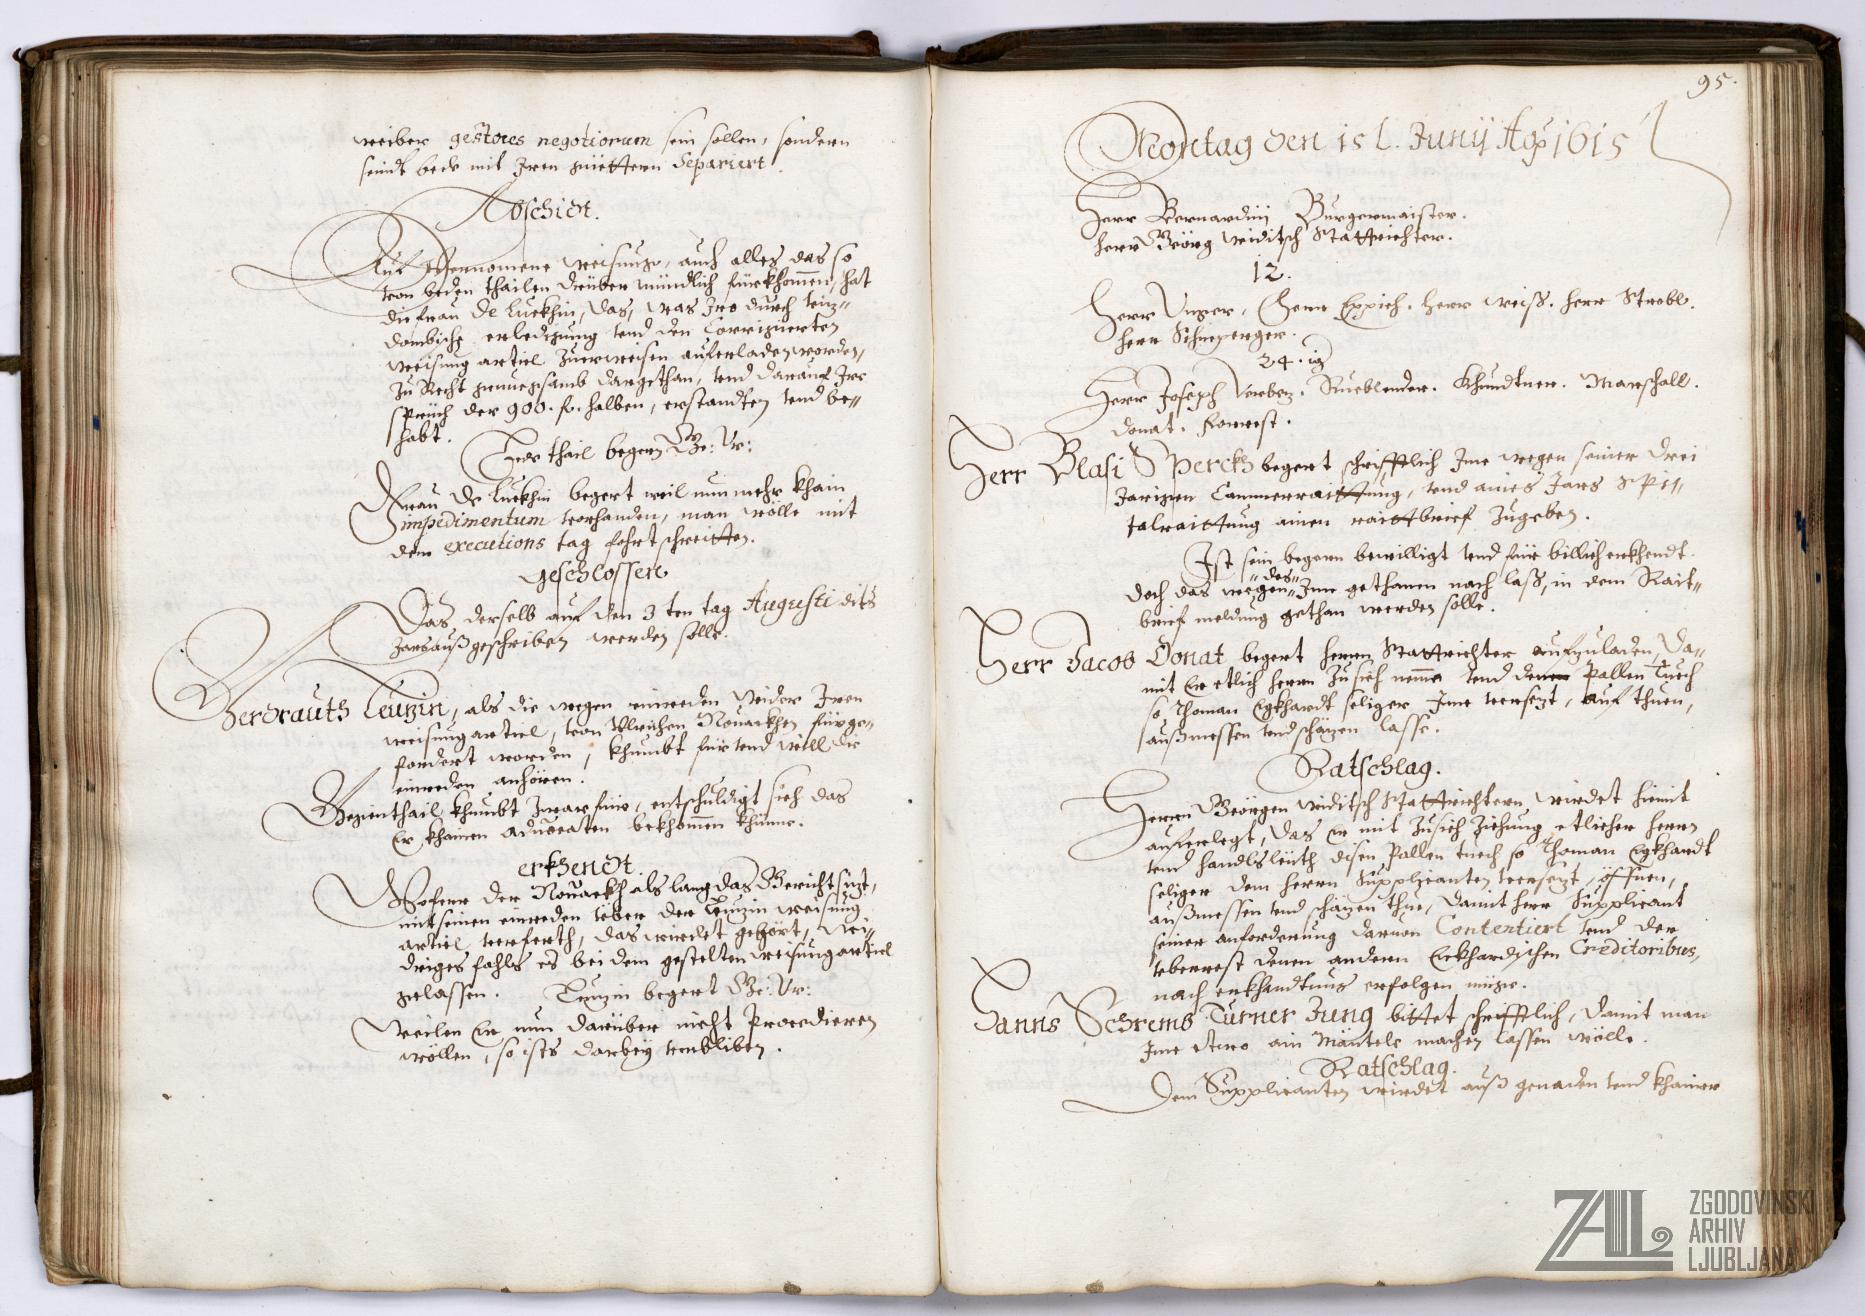 weiber gestores negotiorum sein sollen, sondern
seindt bede mit Iren güettern Separiert.
Abschidt.
Auf vernomene weisung, auch alles das so
von beden thailen drüber mündlich fürkhomen, hat
die frau De Lukhin, das, was Iro durch
erledigung vnd den Corrigierten
weisung articl zuerweisen auferladen worden,
zu Recht genuegsamb dargethan, vnd darauf Ire
sprüch der 900. fl. halben, erstandten vnd be-
habt.
Jeder thail begern Ge: Vr:
Frau De Lukhin begert weil nunmehr khain
impedimentum vorhanden, man wölle mit
dem executions tag fohrt schreitten.
Geschlossen
Das derselb auf den 3 ten tag Augusti dits
Jars außgeschriben werden solle.
Gerdrauth Leuzin, als die wegen einreden wider Iren
weisung articl, von Ulrichen Nouackhen fürge-
fordert worden, khumbt für vnd will die
einreden anhören.
Gegenthail khumbt zwar für, entschuldigt sich das
Er khainen aduocaten bekhomen khünne.
erkhendt.
Wofern der Nouackh als lang das Gericht sizt,
mit seinen einreden über der Leuzin weisung
articl verferth, das wirdet gehört, wi-
driges fahls es bei dem gestelten weisung articl
gelassen. Leuzin begert Ge: Vr:
Weilen Er nun darüber nicht Procedieren
wöllen, so ists darbey verbliben.
95.
Montag den 15 t. Junij Ao 1615
Herr Bernardini Burgermaister.
herr Geörg Viditsch Stattrichter.
12.
Herr Vnger, Herr Eppich. herr weiß. herr Strobl.
herr Schneperger.
24. ig
Herr Joseph Verbez. Rueblender. Khundtner. Marschall.
Donat. Forrest.
Herr Blasi Sperckh begert schrifftlich Ime wegen seiner drei
Jarigen Cammerraittung, vnd aines Jars Spi-
talraittung ainen raittbrief zugeben.
Ist sein begern bewilligt vnd für billich erkhendt.
"des"
Doch das wegen Ime gethanen nach laß, in dem Rait-
brief meldung gethan werden solle.
Herr Jacob Donat begert herrn Stattrichter aufzuladen, da-
mit Er etlich herrn zu sich neme vnd den Pallen Tuech
so Thoman Egkhardt seliger Ime versezt, auf thuen,
außmessen vnd schäzen lasse.
Ratschlag.
Herrn Geörgen Viditsch Stattrichtern, wirdet hiemit
auferlegt, das Er mit zusich ziehung etlicher herrn
vnd handlsleüth disen Pallen tuech so Thoman Egkhardt
seliger dem herrn Supplicanten versezt, öffnen,
außmessen vnd schäzen thue, damit herr Supplicant
seiner anforderung daruon Contentiert vnd der
vberrest denen andern Eckhardischen Creditoribus,
nach erkhandtnus erfolgen müge.
Hanns Schrembs Turner Jung bittet schrifftlich, damit man
Ime etwo ain Mäntele machen lassen wölle.
Ratschlag.
Dem Supplicanten wirdet auß genaden vnd khainer
ZAL
ZGODOVINSKI
ARHIV
LJUBLJANA